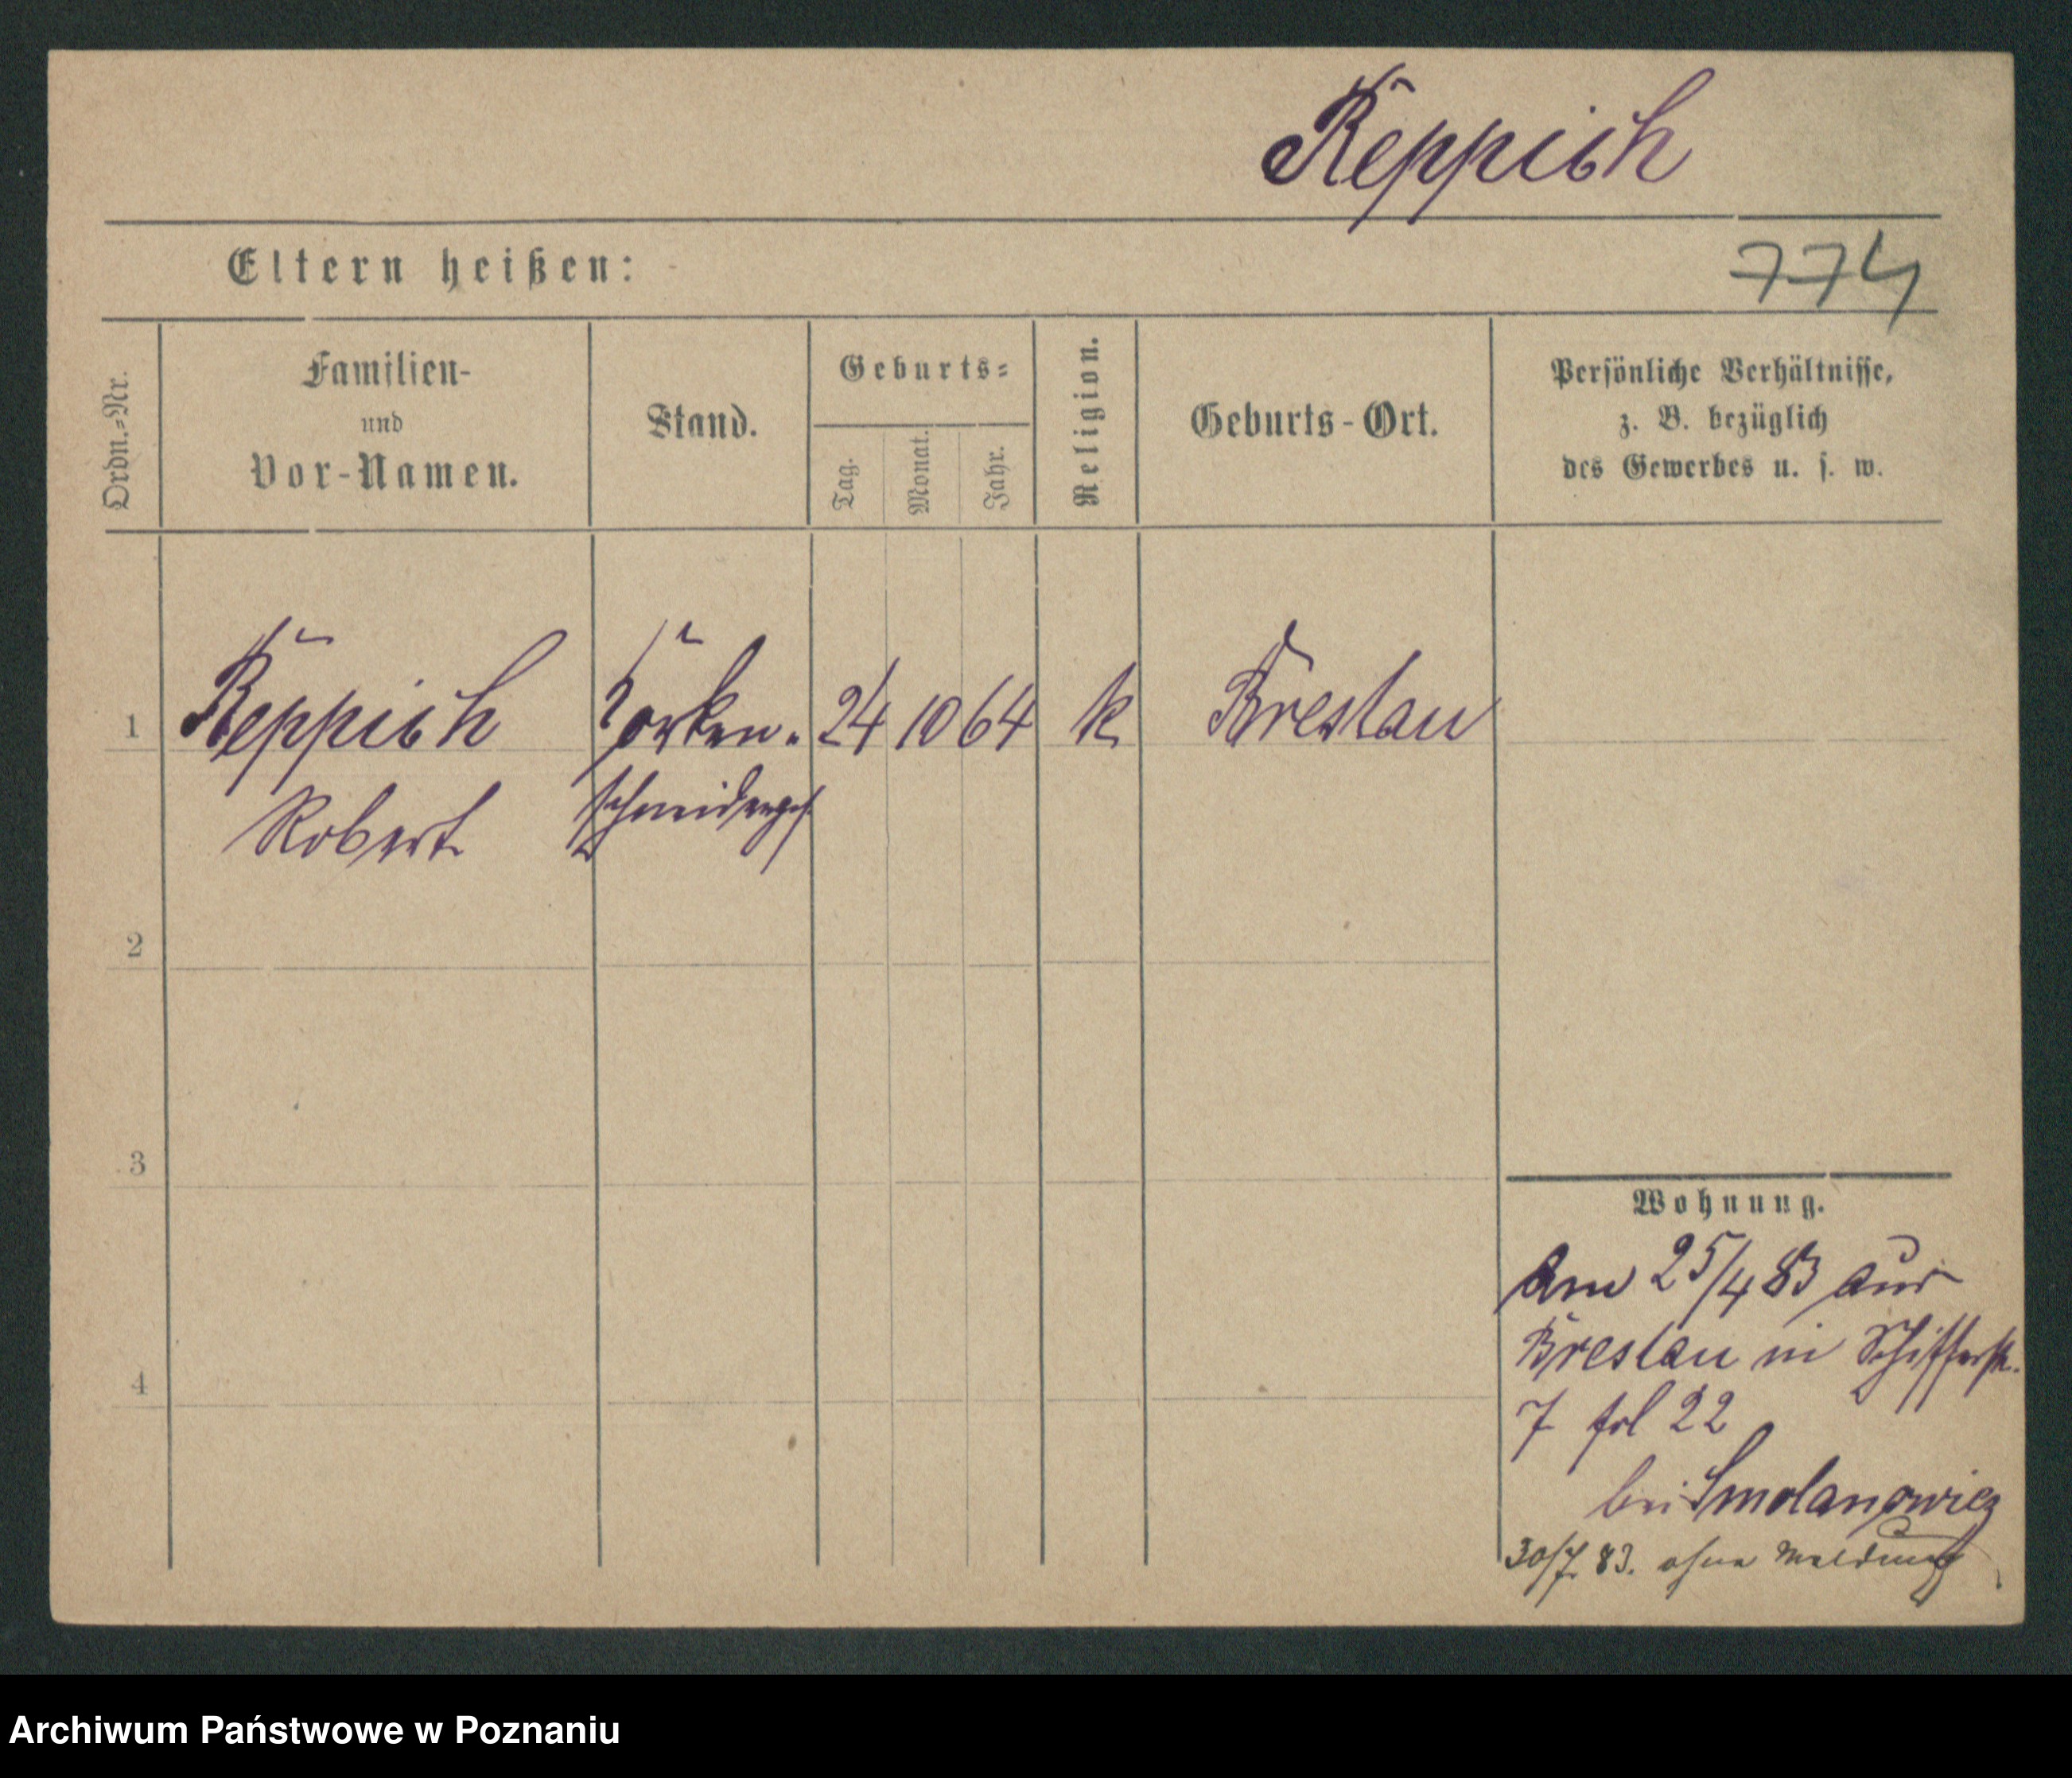 Reppich
Eltern heißen:
774
Ordn.-Nr.
Familien-
und
Vor-Namen.
Stand.
Geburts-
Tag.
Monat.
Jahr.
Religion.
Geburts-Ort.
Persönliche Verhältnisse,
z. B. bezüglich
des Gewerbes u. s. w.
1
Reppich
Korken-
24
10
64
k
Breslau
Robert
schneiderges.
2
3
4
Wohnung.
Am 25/4 83 aus
Breslau in Schifferstr.
7 fol 22
bei Smolanowicz
30/7. 83. ohne Meldung
Archiwum Państwowe w Poznaniu